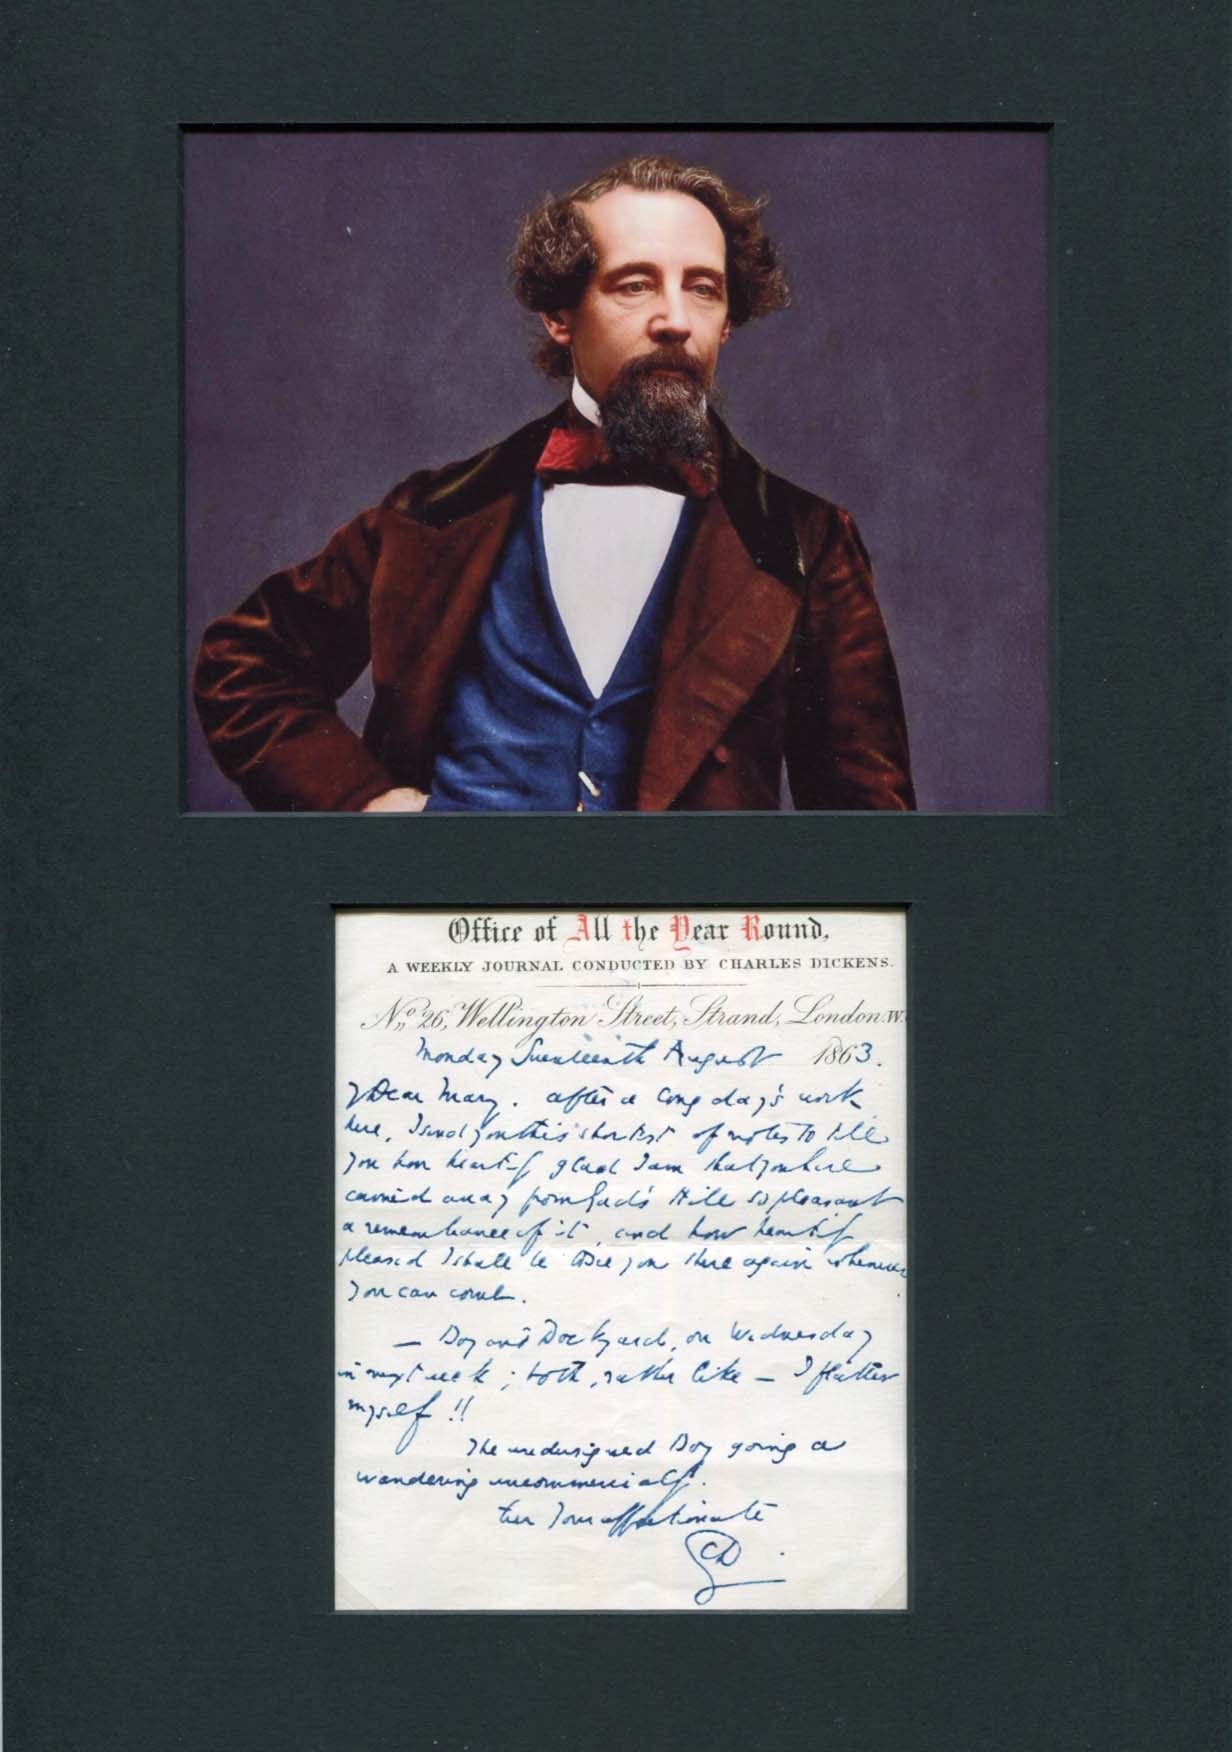 Office of All the Year Round,
A WEEKLY JOURNAL CONDUCTED BY CHARLES DICKENS.
No. 26, Wellington Street, Strand, London. W.
Monday Seventeenth August 1863.
My Dear Mary. After a long day's work
here, I send you this shortest of notes to tell
you how heartily glad I am that you have
carried away from Gad's Hill so pleasant
a remembrance of it, and how heartily
pleased I shall be to see you there again whenever
you can come.
— Dog and Dockyard, on Wednesday
in next week; both, rather like — I flatter
myself!!
The undersigned Dog going a
wandering uncommercially.
Ever Your affectionate
CD